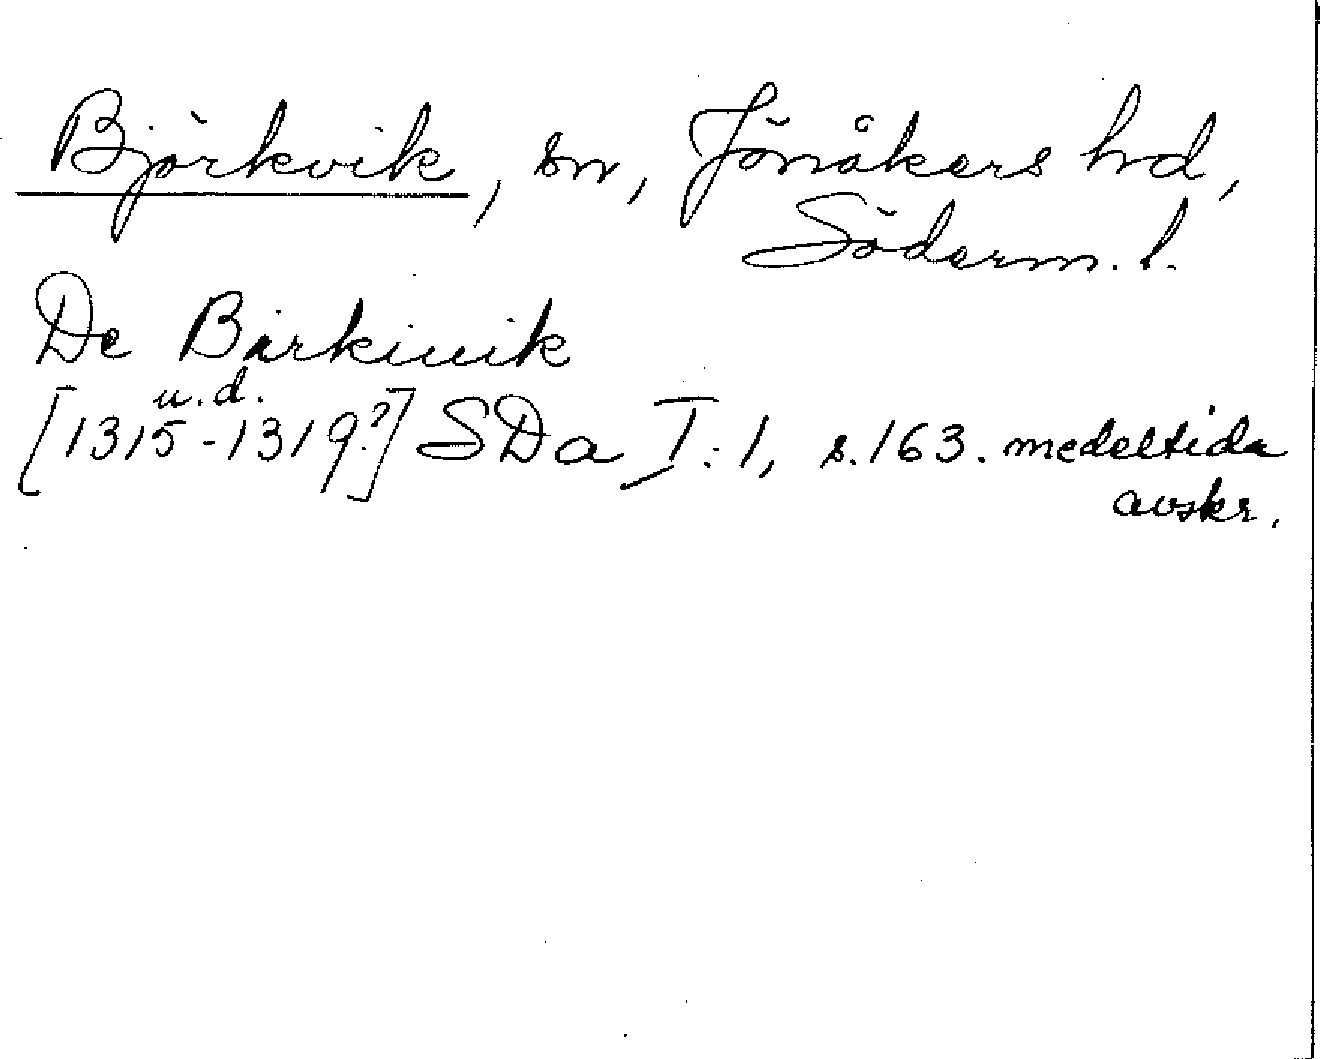 Björkvik, sn, Jönåkers hd,
Söderm. l.
De Bærkiuik
u.d.
[1315-1319?] SDa I:1, s.163. medeltida
avskr.